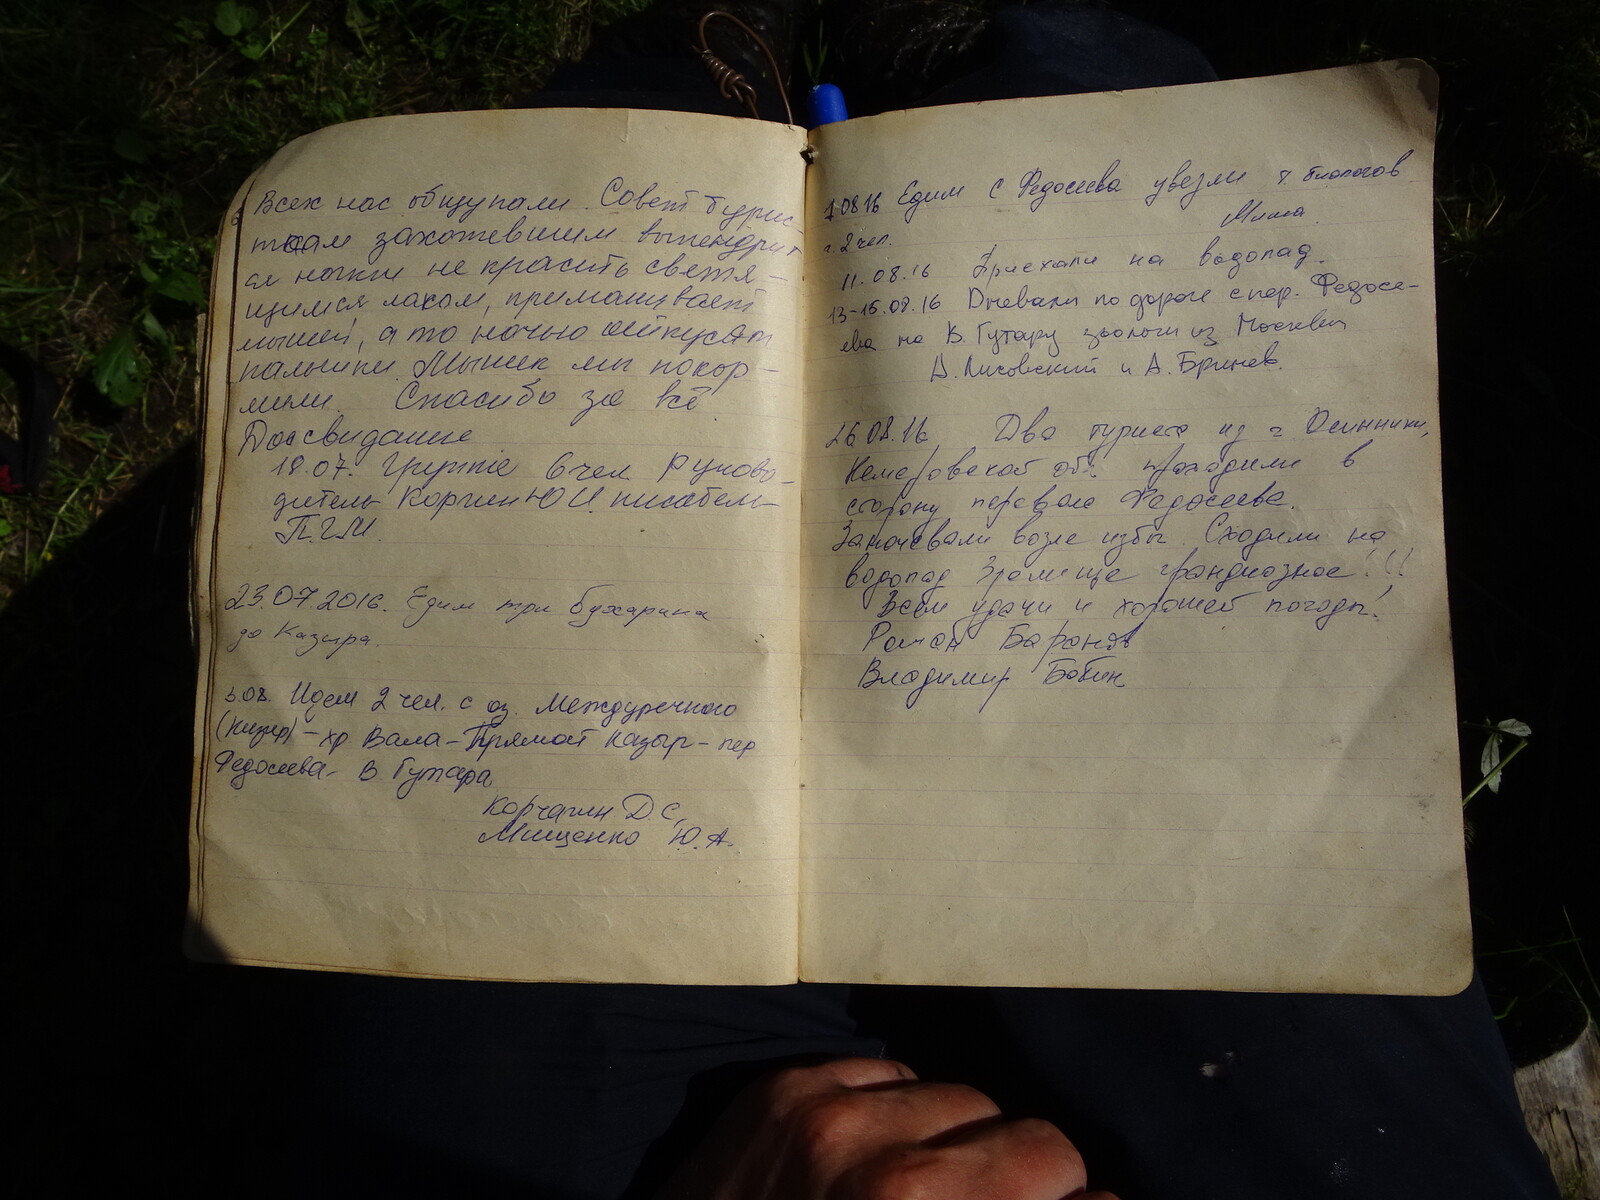 Всех нас общупали. Совет турис-
ткам захотевшим выпендрит
ся ногти не красить светя-
щимся лаком, приманивает
мышей, а то ночью
пальчики. Мышек мы покор-
мили. Спасибо за всё.
Досвидание
18.07. Группа 6 чел. Руково-
дитель Коргин Ю И. писатель
П.Г.М.
23.07.2016. Едим три бухарина
до Казыра.
3.08. Идем 2 чел. с оз. Междуречного
(Кизир) - хр Вала - Прямой Казыр - пер
Федосеева - В Гутара
Корчагин Д.С.
Мищенко Ю.А.
08 16 Едим с Федосеева увезли биологов
2 чел. Миша.
11.08.16 Приехали на водопад.
13-15.08.16 Дневали по дороге с пер. Федосе-
ева на В. Гутару зоологи из Москвы
Лисовский и А. Бринёв.
26 08.16, Два туриста из г Осинники,
Кемеровской об. проходили в
сторону перевала Федосеева.
Заночевали возле избы. Сходили на
водопад Зрелище грандиозное!!!
Всем удачи и хорошей погоды!
Роман Баранов
Владимир Бабин